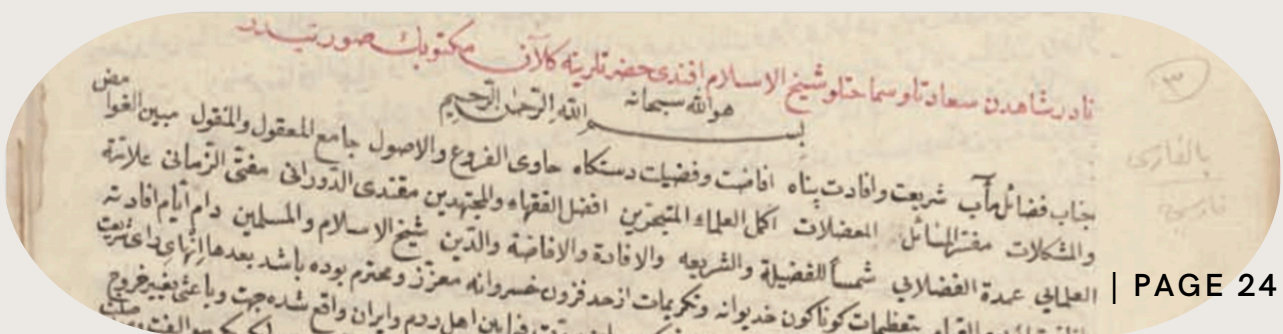 نادرشاهدن سعادتلو سماحتلو شيخ الاسلام افندى حضرتلرينه كلان مكتوبك صورتيدر
هو الله سبحانه
بسم الله الرحمن الرحيم
جناب فضائل مآب شريعت وافادت پناه افاضت وفضيلت دستكاه حاوى الفروع والاصول جامع المعقول والمنقول مبين الغوامض
والمشكلات مفسر المسائل المعضلات اكمل العلماء المتبحرين افضل الفقهاء والمجتهدين مقتدى الدورانى مفتى الزمانى علامة
العلمايى عمدة الفضلايى شمساً للفضيلة والشريعه والافادة والافاضة والدين شيخ الاسلام والمسلمين دام ايام افادته
بتعظيمات كوناكون خديوانه وتكريمات ازحد فزون خسروانه معزز ومحترم بوده باشد بعدها انهاى راى شريعت
فيما بين اهل روم وايران واقع شده جهت وباعثى بغير خروج
٣
بالفارسى
| PAGE 24